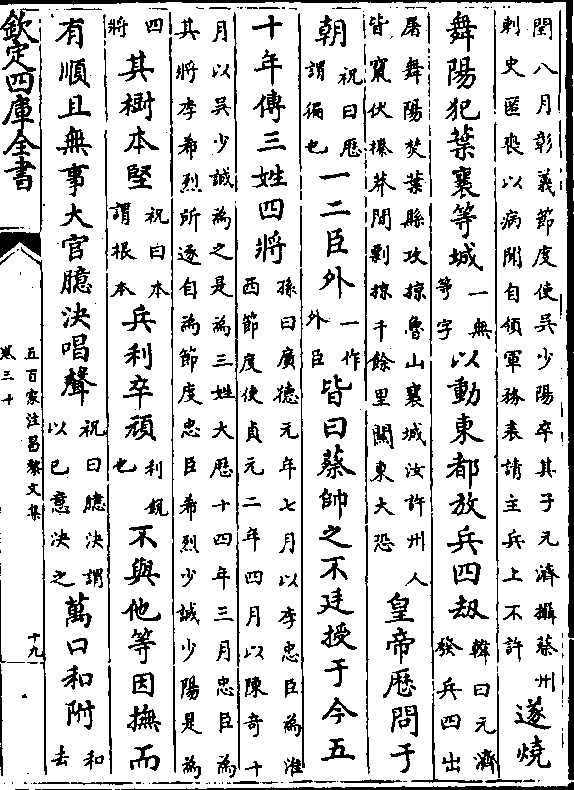 閏八月彰義節度使吳少陽卒其子元濟攝蔡州
刺史匿喪以病聞自領軍務表請主兵上不許
遂燒
舞陽犯葉襄等城
一無
等字
以動東都放兵四刼
韓曰元濟
發兵四出
屠舞陽焚葉縣攻掠魯山襄城汝許州人
皆竄伏榛莽間剽掠千餘里關東大恐
皇帝歷問于
朝
祝曰歷
謂徧也
一二臣外
一作
外臣
皆曰蔡帥之不廷授于今五
十年傳三姓四將
孫曰廣德元年七月以李忠臣為淮
西節度使貞元二年四月以陳奇十
月以吳少誠為之是為三姓大歷十四年三月忠臣為
其將李希烈所逐自為節度忠臣希烈少誠少陽是為
四
將
其樹本堅
祝曰本
謂根本
兵利卒頑
利銳
也
不與他等因撫而
有順且無事大官臆決唱聲
祝曰臆決謂
以已意決之
萬口和附
和
去
欽定四庫全書
五百家注昌黎文集
卷三十
十九